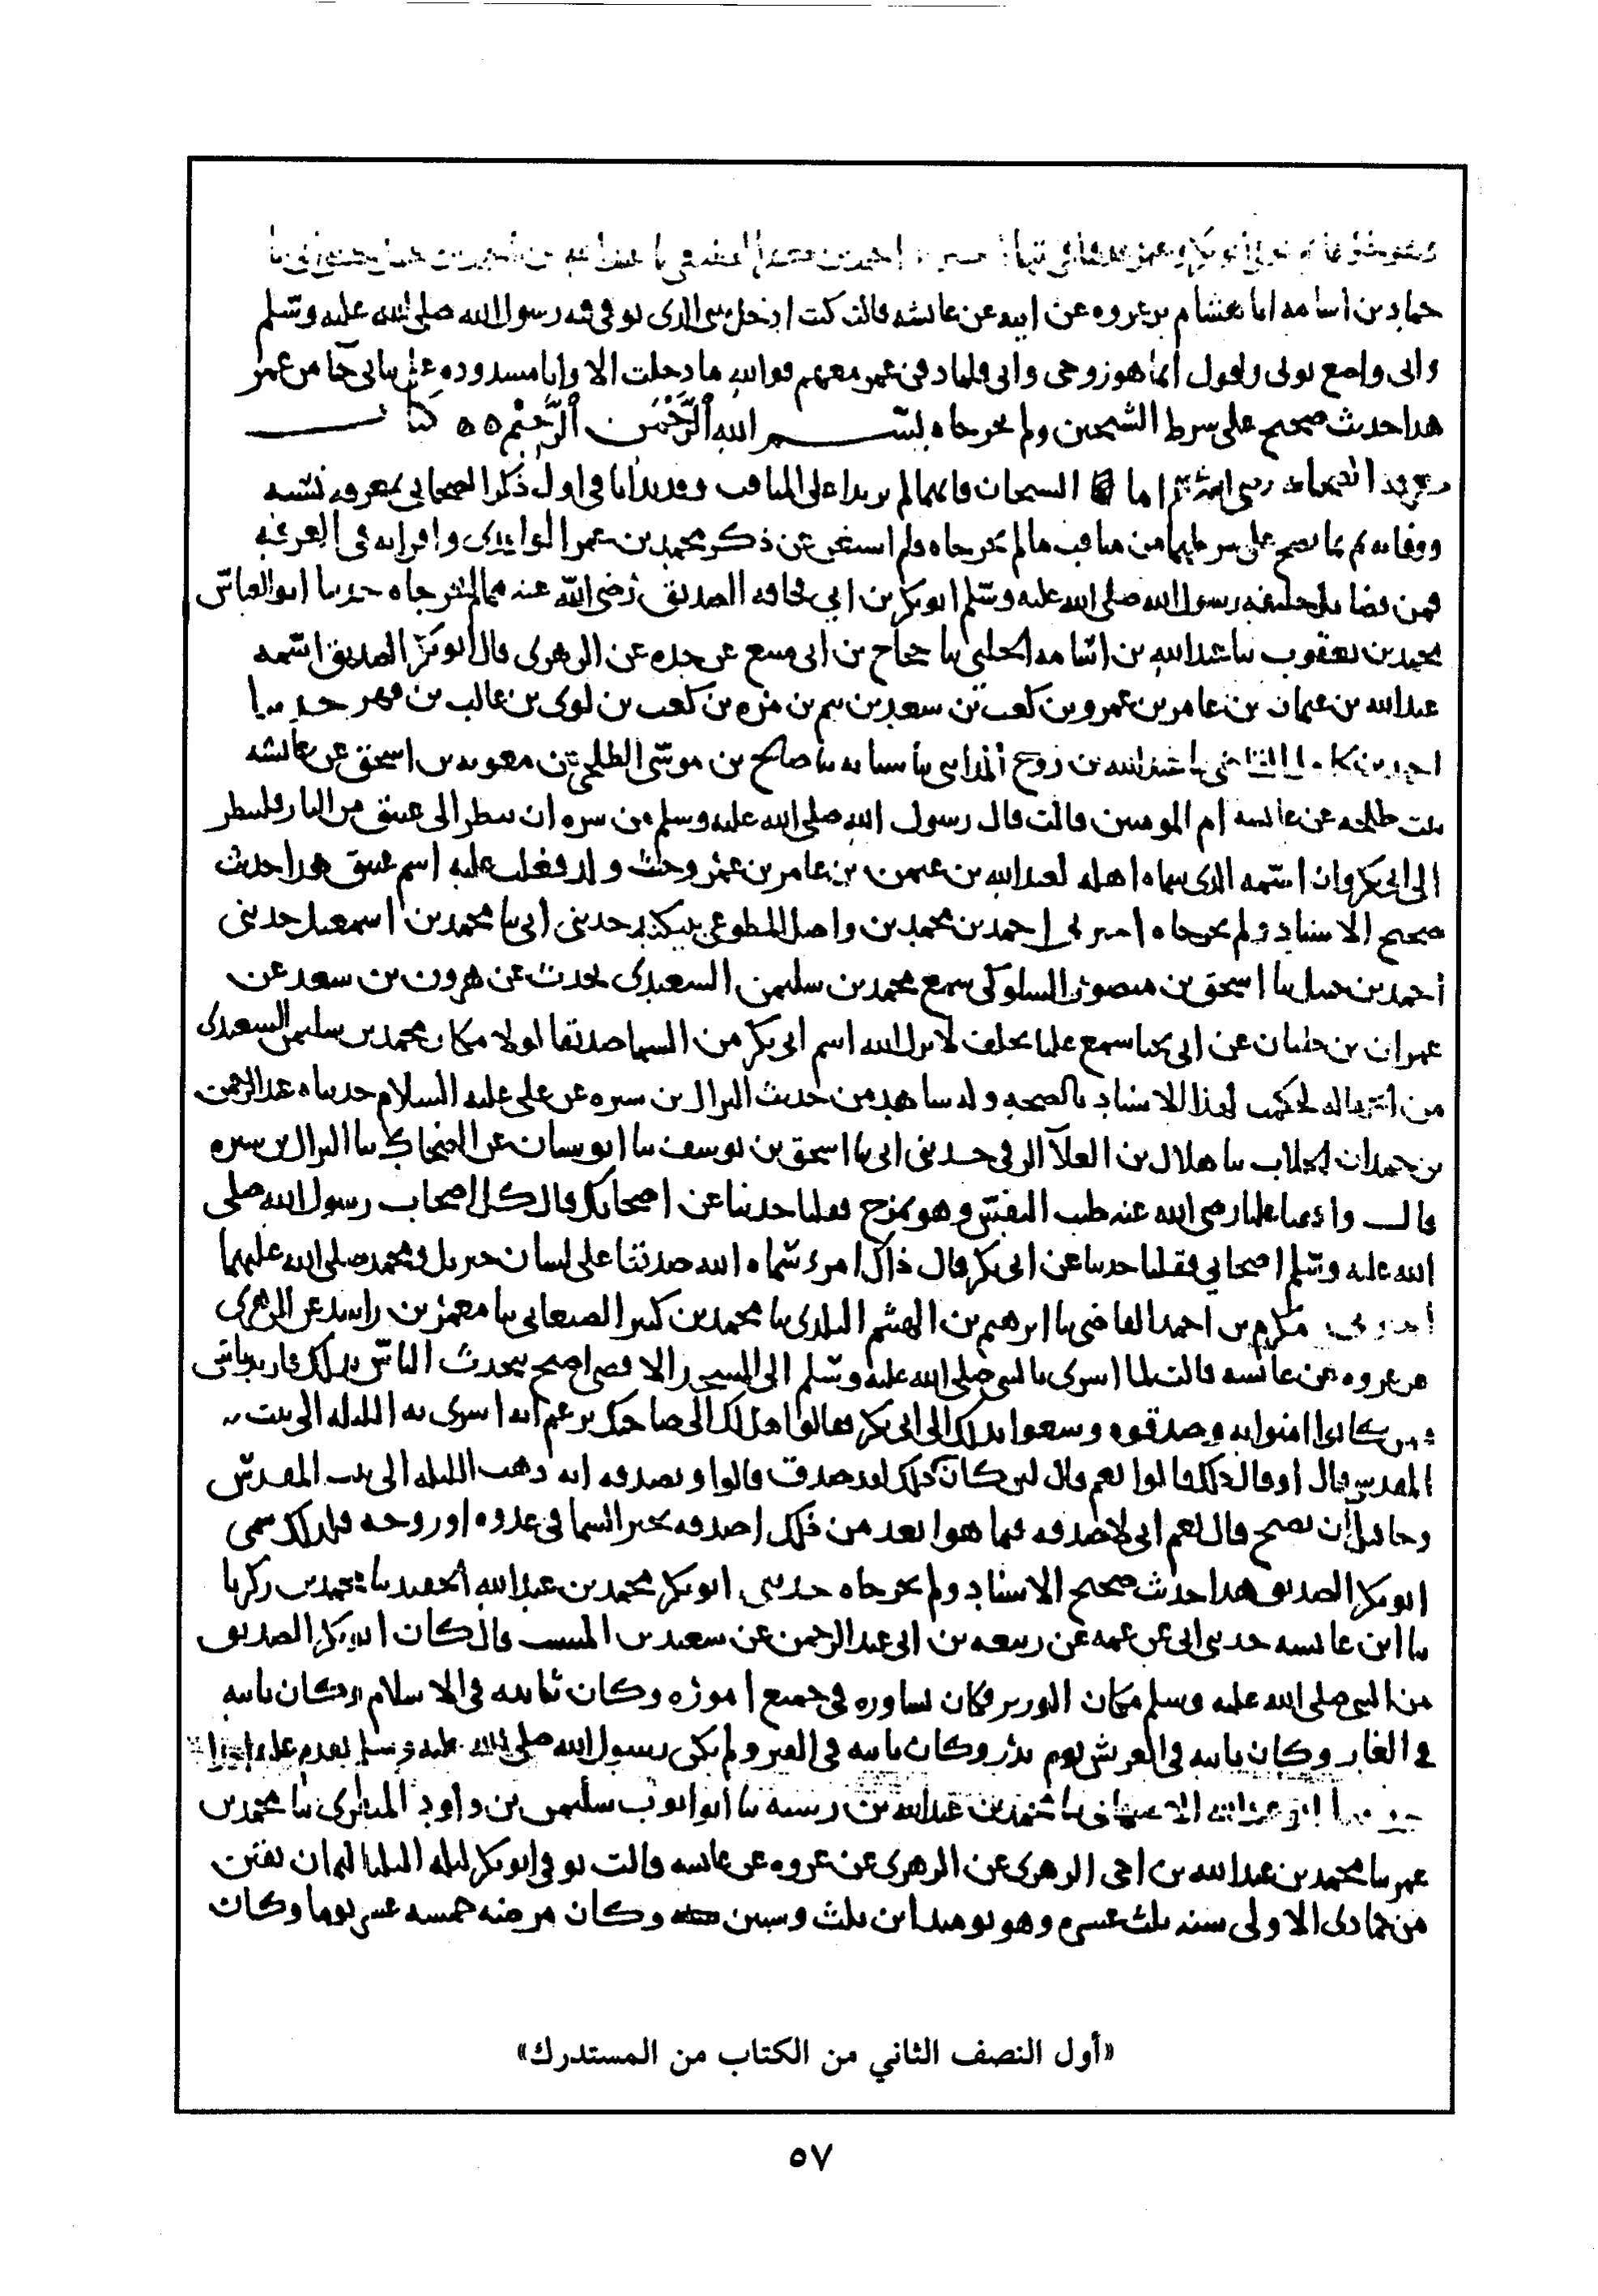 حماد بن اسامه انا هشام بن عروه عن ابيه عن عائشه قالت كنت ادخل بيتى الذى توفي فيه رسول الله صلى الله عليه وسلم
وابى واضع ثوبى واقول انما هو زوجى وابى فلما دفن عمر معهم فوالله ما دخلت الا وانا مسدوده على ثيابي حيا من عمر
هذا حديث صحيح على شرط الشيخين ولم يخرجاه بسم الله الرحمن الرحيم كتاب
معرفه الصحابه رضى الله عنهم اما الشيخان فانهما لم يزيدا على المناقب وقد بدانا في اول ذكر الصحابي بمعرفه نسبه
ووفاته ثم بما يصح على شرطهما من مناقبه ما لم يخرجاه فلم استغن عن ذكر محمد بن عمر الواقدى واقرانه في المعرفه
فمن فضائل خليفه رسول الله صلى الله عليه وسلم ابو بكر بن ابي قحافه الصديق رضى الله عنه مما لم يخرجاه حدثنا ابو العباس
محمد بن يعقوب ثنا عبد الله بن اسامه الحلبي ثنا حجاج بن ابى منيع عن جده عن الزهرى قال ابو بكر الصديق اسمه
عبد الله بن عثمان بن عامر بن عمرو بن كعب بن سعد بن تيم بن مره بن كعب بن لوى بن غالب بن فهر حدثنا
احمد بن كامل القاضى ثنا عبد الله بن روح المدائنى ثنا شبابه ثنا صالح بن موسى الطلحى عن معويه بن اسحق عن عائشه
بنت طلحه عن عائشه ام المومنين قالت قال رسول الله صلى الله عليه وسلم من سره ان ينظر الى عتيق من النار فلينظر
الى ابى بكر وان اسمه الذى سماه اهله لعبد الله بن عثمن بن عامر بن عمرو حيث ولد فغلب عليه اسم عتيق هذا حديث
صحيح الاسناد ولم يخرجاه اخبرنى احمد بن محمد بن واصل المطوعى ببيكند حدثنى ابى ثنا محمد بن اسمعيل حدثنى
احمد بن حنبل ثنا اسحق بن منصور السلولى سمع محمد بن سليمن السعيدى يحدث عن هرون بن سعد عن
عمران بن ظبيان عن ابى يحيا سمع عليا يحلف لانزل الله اسم ابى بكر من السما صديقا لولا مكان محمد بن سليمن السعيدى
من الجهاله لحكمت لهذا الاسناد بالصحه وله شاهد من حديث النزال بن سبره عن على عليه السلام حدثناه عبد الرحمن
بن حمدان الجلاب ثنا هلال بن العلا الرقى حدثنى ابى ثنا اسحق بن يوسف ثنا ابو سنان عن الضحاك ثنا النزال بن سبره
قال وافقنا عليا رضى الله عنه طيب النفس وهو يمزح فقلنا حدثنا عن اصحابك قال كل اصحاب رسول الله صلى
الله عليه وسلم اصحابي فقلنا حدثنا عن ابى بكر قال ذاك امرء سماه الله صديقا على لسان جبريل ومحمد صلى الله عليهما
اخبرنى مكرم بن احمد القاضى ثنا ابرهيم بن الهيثم البلدى ثنا محمد بن كثير الصنعانى ثنا معمر بن راشد عن الزهرى
عن عروه عن عائشه قالت لما اسرى بالنبى صلى الله عليه وسلم الى المسجد الاقصى اصبح يتحدث الناس بذلك فارتد ناس
فمن كانوا امنوا به وصدقوه وسعوا بذلك الى ابى بكر فقالوا هل لك الى صاحبك يزعم انه اسرى به الليله الى بيت
المقدس قال اوقال ذلك قالوا نعم قال لئن كان قال ذلك لقد صدق قالوا وتصدقه انه ذهب الليله الى بيت المقدس
وجا قبل ان يصبح قال نعم انى لاصدقه فيما هو ابعد من ذلك اصدقه بخبر السما في غدوه او روحه فلذلك سمى
ابو بكر الصديق هذا حديث صحيح الاسناد ولم يخرجاه حدثنى ابو بكر محمد بن عبد الله الحفيد ثنا محمد بن زكريا
ثنا ابن عائشه حدثنى ابى عن عمه عن ربيعه بن ابى عبد الرحمن عن سعيد بن المسيب قال كان ابو بكر الصديق
من النبى صلى الله عليه وسلم مكان الوزير فكان يشاوره في جميع اموره وكان ثانيه في الاسلام وكان ثانيه
في الغار وكان ثانيه في العريش يوم بدر وكان ثانيه في القبر ولم يكن رسول الله صلى الله عليه وسلم يقدم عليه احدا
حدثنا ابو عبد الله الاصبهانى ثنا محمد بن عبد الله بن رسته ثنا ابو ايوب سليمن بن داود المنقرى ثنا محمد بن
عمر ثنا محمد بن عبد الله بن اخى الزهرى عن الزهرى عن عروه عن عائشه قالت توفى ابو بكر ليله الثلثا لثمان بقين
من جمادى الاولى سنه ثلث عشره وهو يومئذ ابن ثلث وستين وكان مرضه خمسه عشر يوما وكان
«أول النصف الثاني من الكتاب من المستدرك»
٥٧